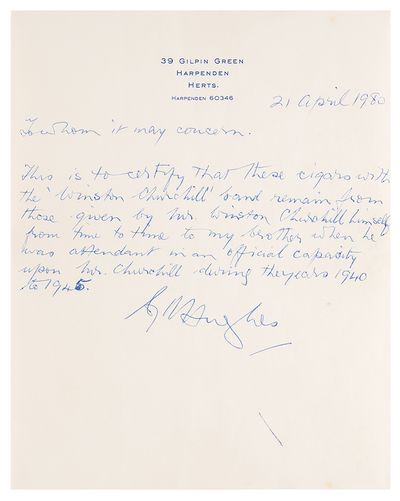 39 GILPIN GREEN
HARPENDEN
HERTS.
HARPENDEN 60346
21 April 1980
To whom it may concern.
This is to certify that these cigars with
the 'Winston Churchill' band remain from
those given by Mr. Winston Churchill himself
from time to time to my brother when he
was attendant in an official capacity
upon Mr. Churchill during the years 1940
to 1945.
Hughes